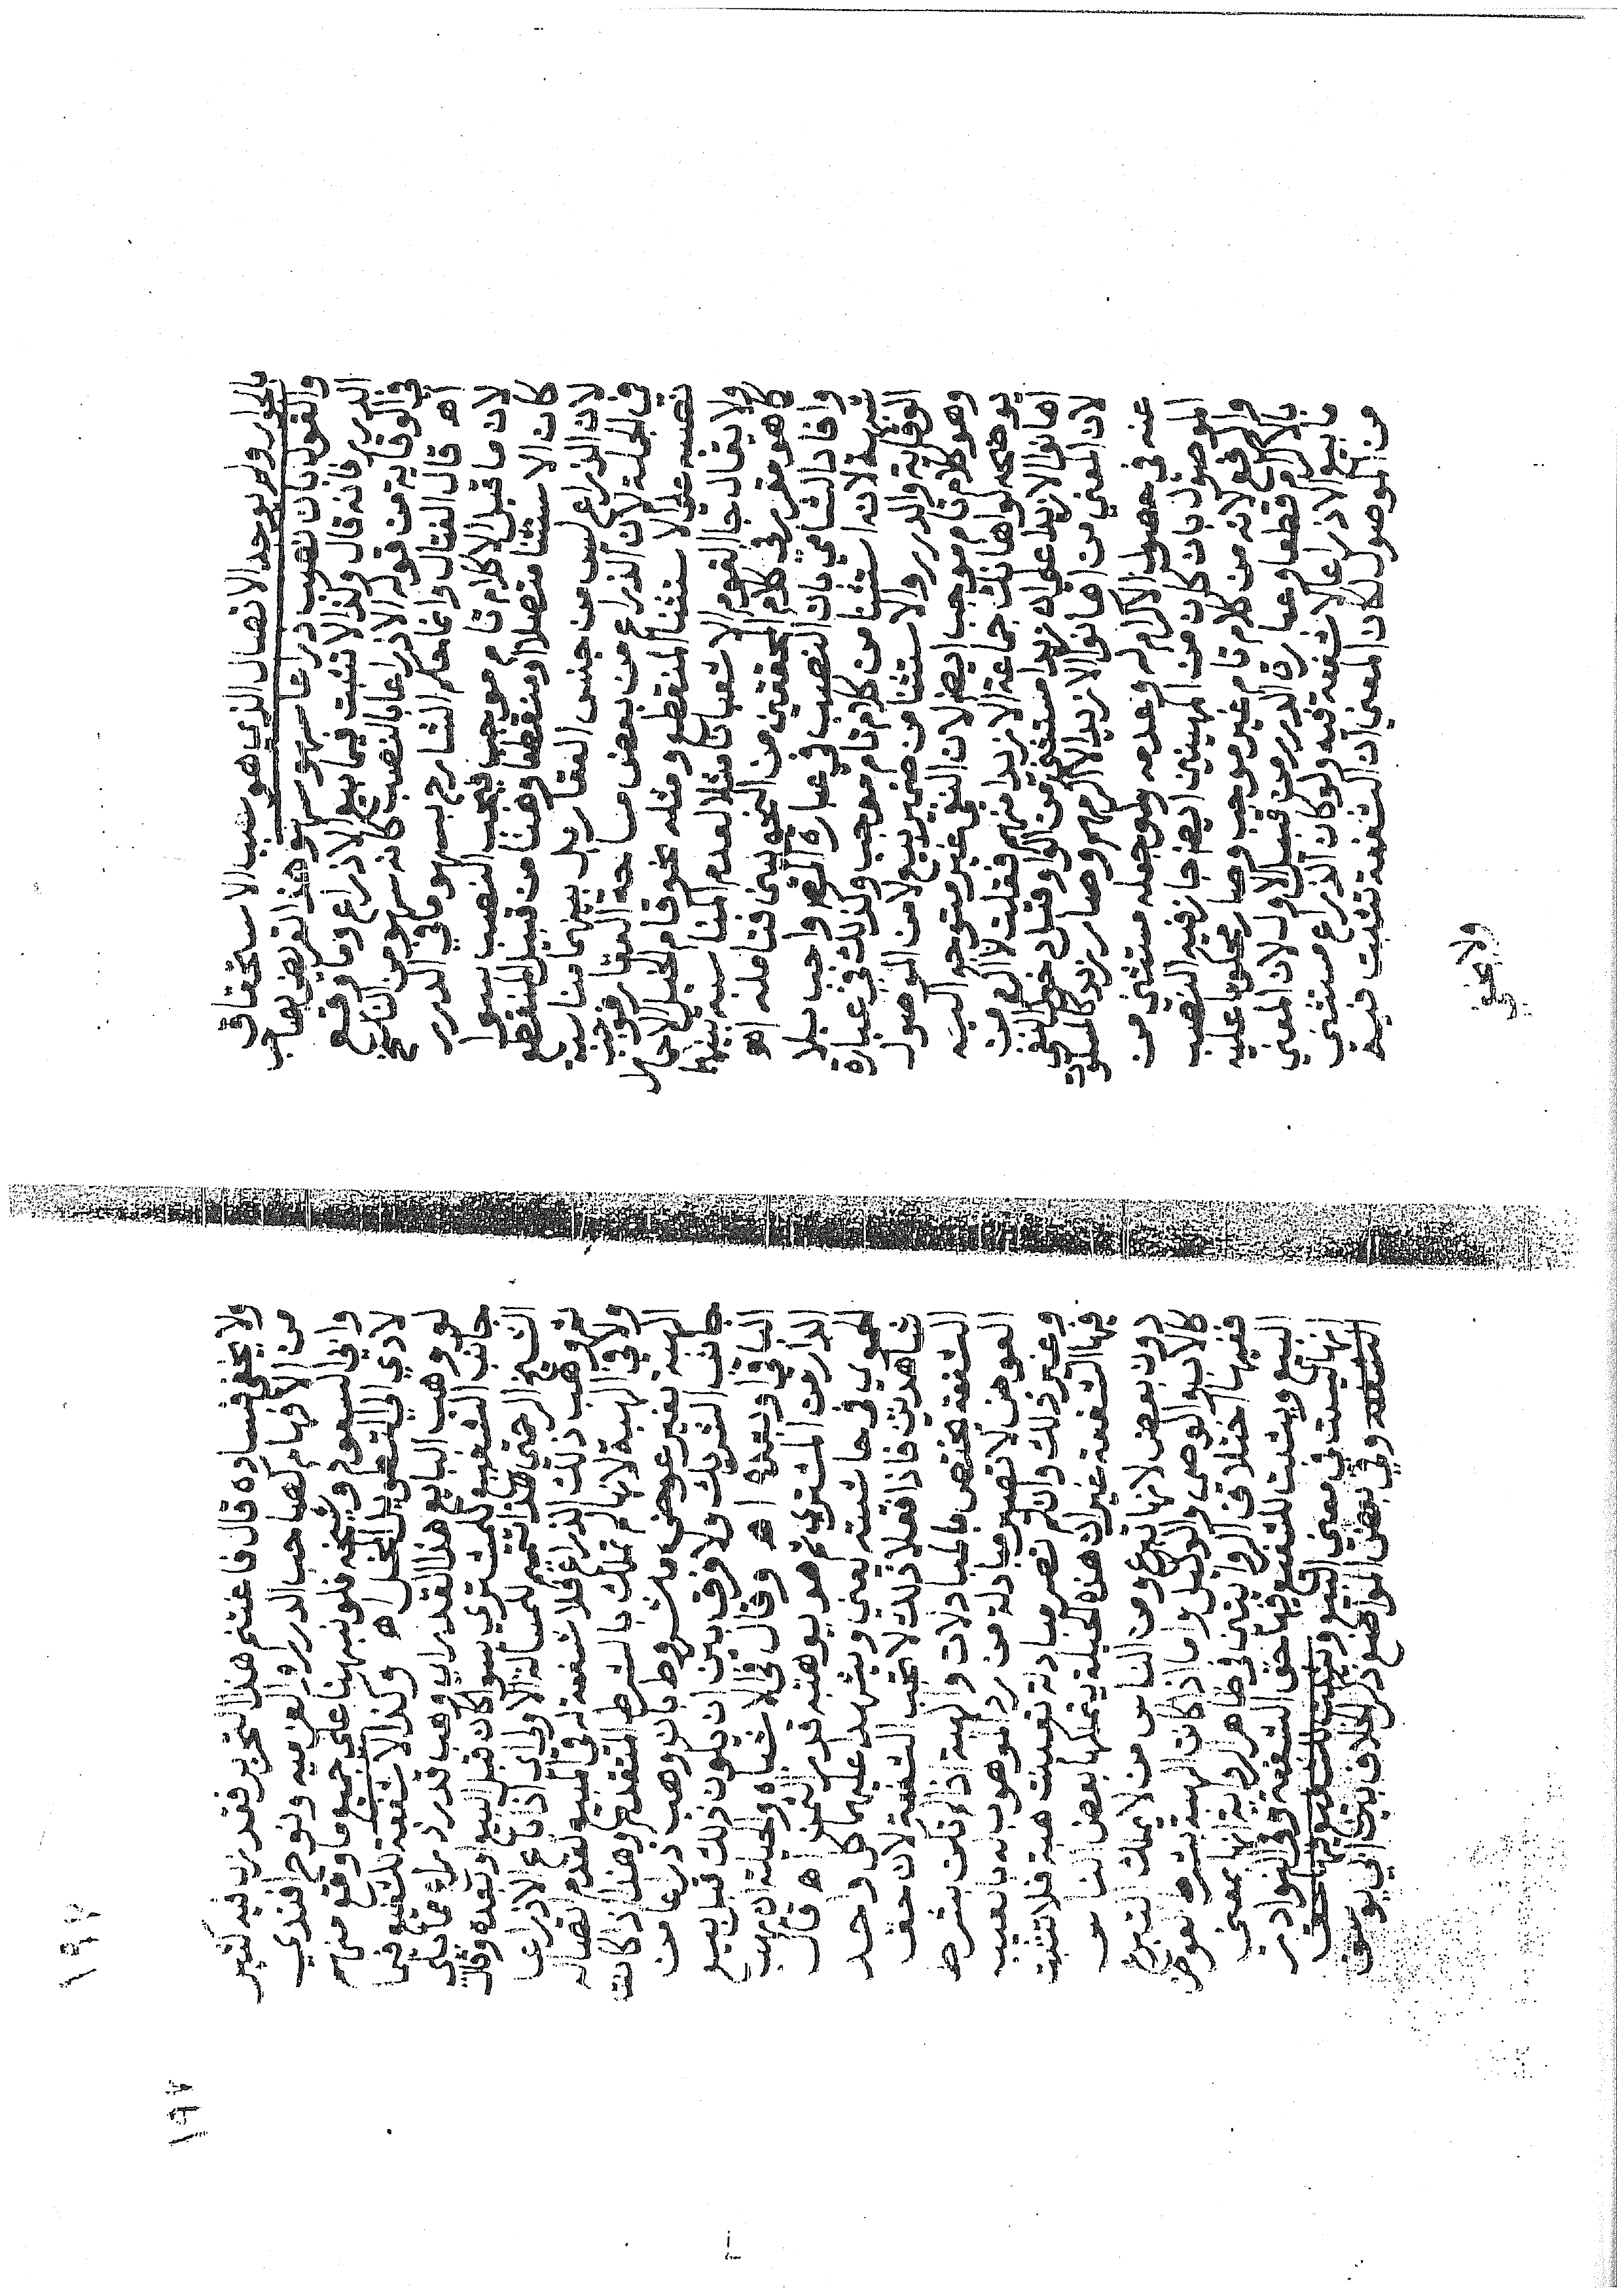 بالجوار ولم يوجد الاتصال الذي هو سبب الاستحقاق
والقول بان نصب ذراعا سهو سهو هذا تعريض بصاحب
الدرر فانه قال وكذا لا تثبت فيما بيع الا ذراع وما وقع
في الوقاية من قوله الا ذراعا بالنصب كانه سهو من الناسخ
اه قال الفتال وانما حكم الشارح بسهو ما في الدرر
لان ما قبل الا كلام تام موجب فيجب النصب سوا
كان الاستثنا متصلا او منقطعا وهنا من قبيل المنقطع
لان الذراع ليس من جنس العقار بل بينهما مناسبة
في الجملة لان الذراع من بعض مساحة العقار فوجب
نصبه على الاستثنا المنقطع ومثله نحو قام الخيل الا حمارا
ولا يقال جا القوم الا ثعبانا مثلا لعدم المناسبة بينهما
كما هو مقرر في كلام المحققين من النحويين فتامله اه
وافاد الشامي بان النصب في عبارة المص واجب بلا
شبهة لانه استثنا من كلام تام موجب وكذلك في عبارة
الوقاية والدرر والاستثنا من ضمير بيع لا من الموصول
وهو كلام تام موجب ايضا لان النفي غير متوجه اليه
يوضحه لو اهانك جماعة الا زيدا منهم فقلت لا اكرم من
اهانوا الا زيدا على ان زيدا مستثنى من الواو قبل دخول النفي
لان المعنى من اهانوا الا زيدا لا اكرمهم وصار زيد كالمسكوت
عنه في حصول الاكرام له وعدمه ولو جعله مستثنى من
الموصول بان كان من المهينين ايضا جاز فيه النصب
والرفع لانه من كلام تام غير موجب وصار محكوما عليه
بالاكرام قطعا وعبارة الدرر من قبيل الاول لان المعنى
ما بيع الا ذراعا لا شفعة فيه ولو كان الذراع مستثنى
من الموصول لكان المعنى ان الشفعة تثبت فيه
ولا يخفى
١٩٧
١٩٧
ولا يخفى فساده قال فاغتنم هذا التحرير فقد زل فيه كثير
من الافهام كصاحب الدرر والعزمية ونوح افندي
وابي السعود وشيخه فلو نبهنا على جميع ما وقع منهم
لادي الي التطويل المخل اه وكذا لا شفعة للشفيع فيما
لو وهب البايع هذا القدر اي وهب قدر ذراع مما يلي
جانب الشفيع للمشتري سوا كان قبل البيع او بعده وقال
الشيخ الرحمتي هذا تتميم للمسالة الاولى اي اذا باع الا ذراعا
ثم وهب ذلك الذراع فلا شفعة له في المبيع لعدم اتصاله
ولا في الهبة لانها لم تملك بالشرط المتقدم وهذا اذا كانت
الهبة بغير عوض مشروط بان وهب ذراعا من
جانب الشريك ولا فرق بين ان يكون ذلك قبل بيع
الباقي او بعده اه وقال في الاشباه والحيلة ان يهب
الدار من المشتري ثم هو يوهبه قدر الثمن اه قال
الحموي في حاشيته يعني ويشهد عليهما كل واحد
شاهدين فاذا فعلا ذلك لا تجب الشفعة لان حق
الشفعة يختص بالمبادلات والهبة اذا لم تكن بشرط
العوض لا تصير مبادلة من رد الموهوب له بالعيب
وغير ذلك وان لم تصر مبادلة تعينت هبة فلا تثبت
فيها الشفعة غير ان هذه الحيلة يملكها بعض الناس
دون بعض لانها تبرع ومن الناس من لا يملك التبرع
كالاب والوصي والوكيل واما اذا كان الهبة بشرط العوض
ففيها اختلاف الروايتين في ظاهر الرواية انها بمعنى
البيع ويثبت للشفيع فيها حق الشفعة وفي النوادر
انها ليست في معنى البيع ولا يثبت للشفيع فيها حق
الشفعة وفي بعض المواضع ذكر الخلاف بين ابي يوسف